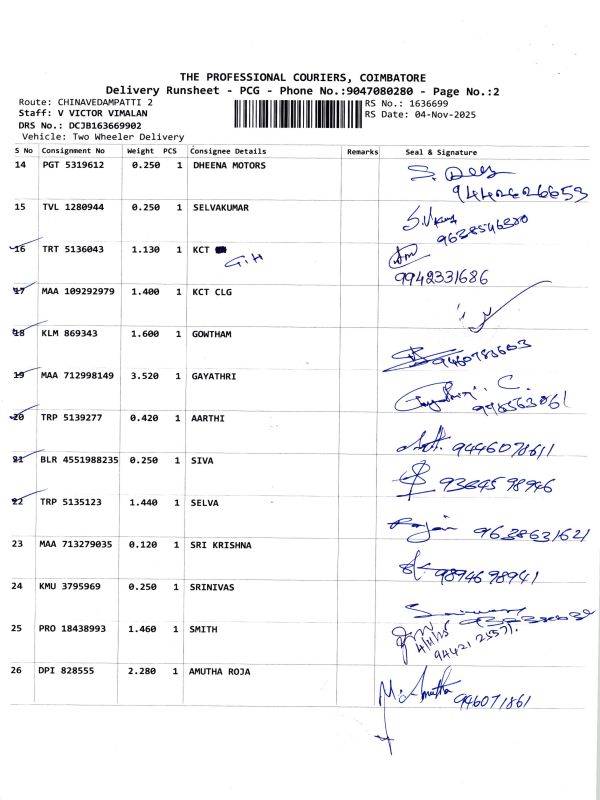 THE PROFESSIONAL COURIERS, COIMBATORE
Delivery Runsheet - PCG - Phone No.:9047080280 - Page No.:2
Route: CHINAVEDAMPATTI 2 RS No.: 1636699
Staff: V VICTOR VIMALAN RS Date: 04-Nov-2025
DRS No.: DCJB163669902
Vehicle: Two Wheeler Delivery
S No Consignment No Weight PCS Consignee Details Remarks Seal & Signature
14 PGT 5319612 0.250 1 DHEENA MOTORS
15 TVL 1280944 0.250 1 SELVAKUMAR
16 TRT 5136043 1.130 1 KCT
G.H
9942331686
17 MAA 109292979 1.400 1 KCT CLG
18 KLM 869343 1.600 1 GOWTHAM
9460783603
19 MAA 712998149 3.520 1 GAYATHRI
20 TRP 5139277 0.420 1 AARTHI
9446078611
21 BLR 4551988235 0.250 1 SIVA
9364598946
22 TRP 5135123 1.440 1 SELVA
9638631621
23 MAA 713279035 0.120 1 SRI KRISHNA
9894698941
24 KMU 3795969 0.250 1 SRINIVAS
25 PRO 18438993 1.460 1 SMITH
4/11/25
26 DPI 828555 2.280 1 AMUTHA ROJA
M. Amutha 946071861